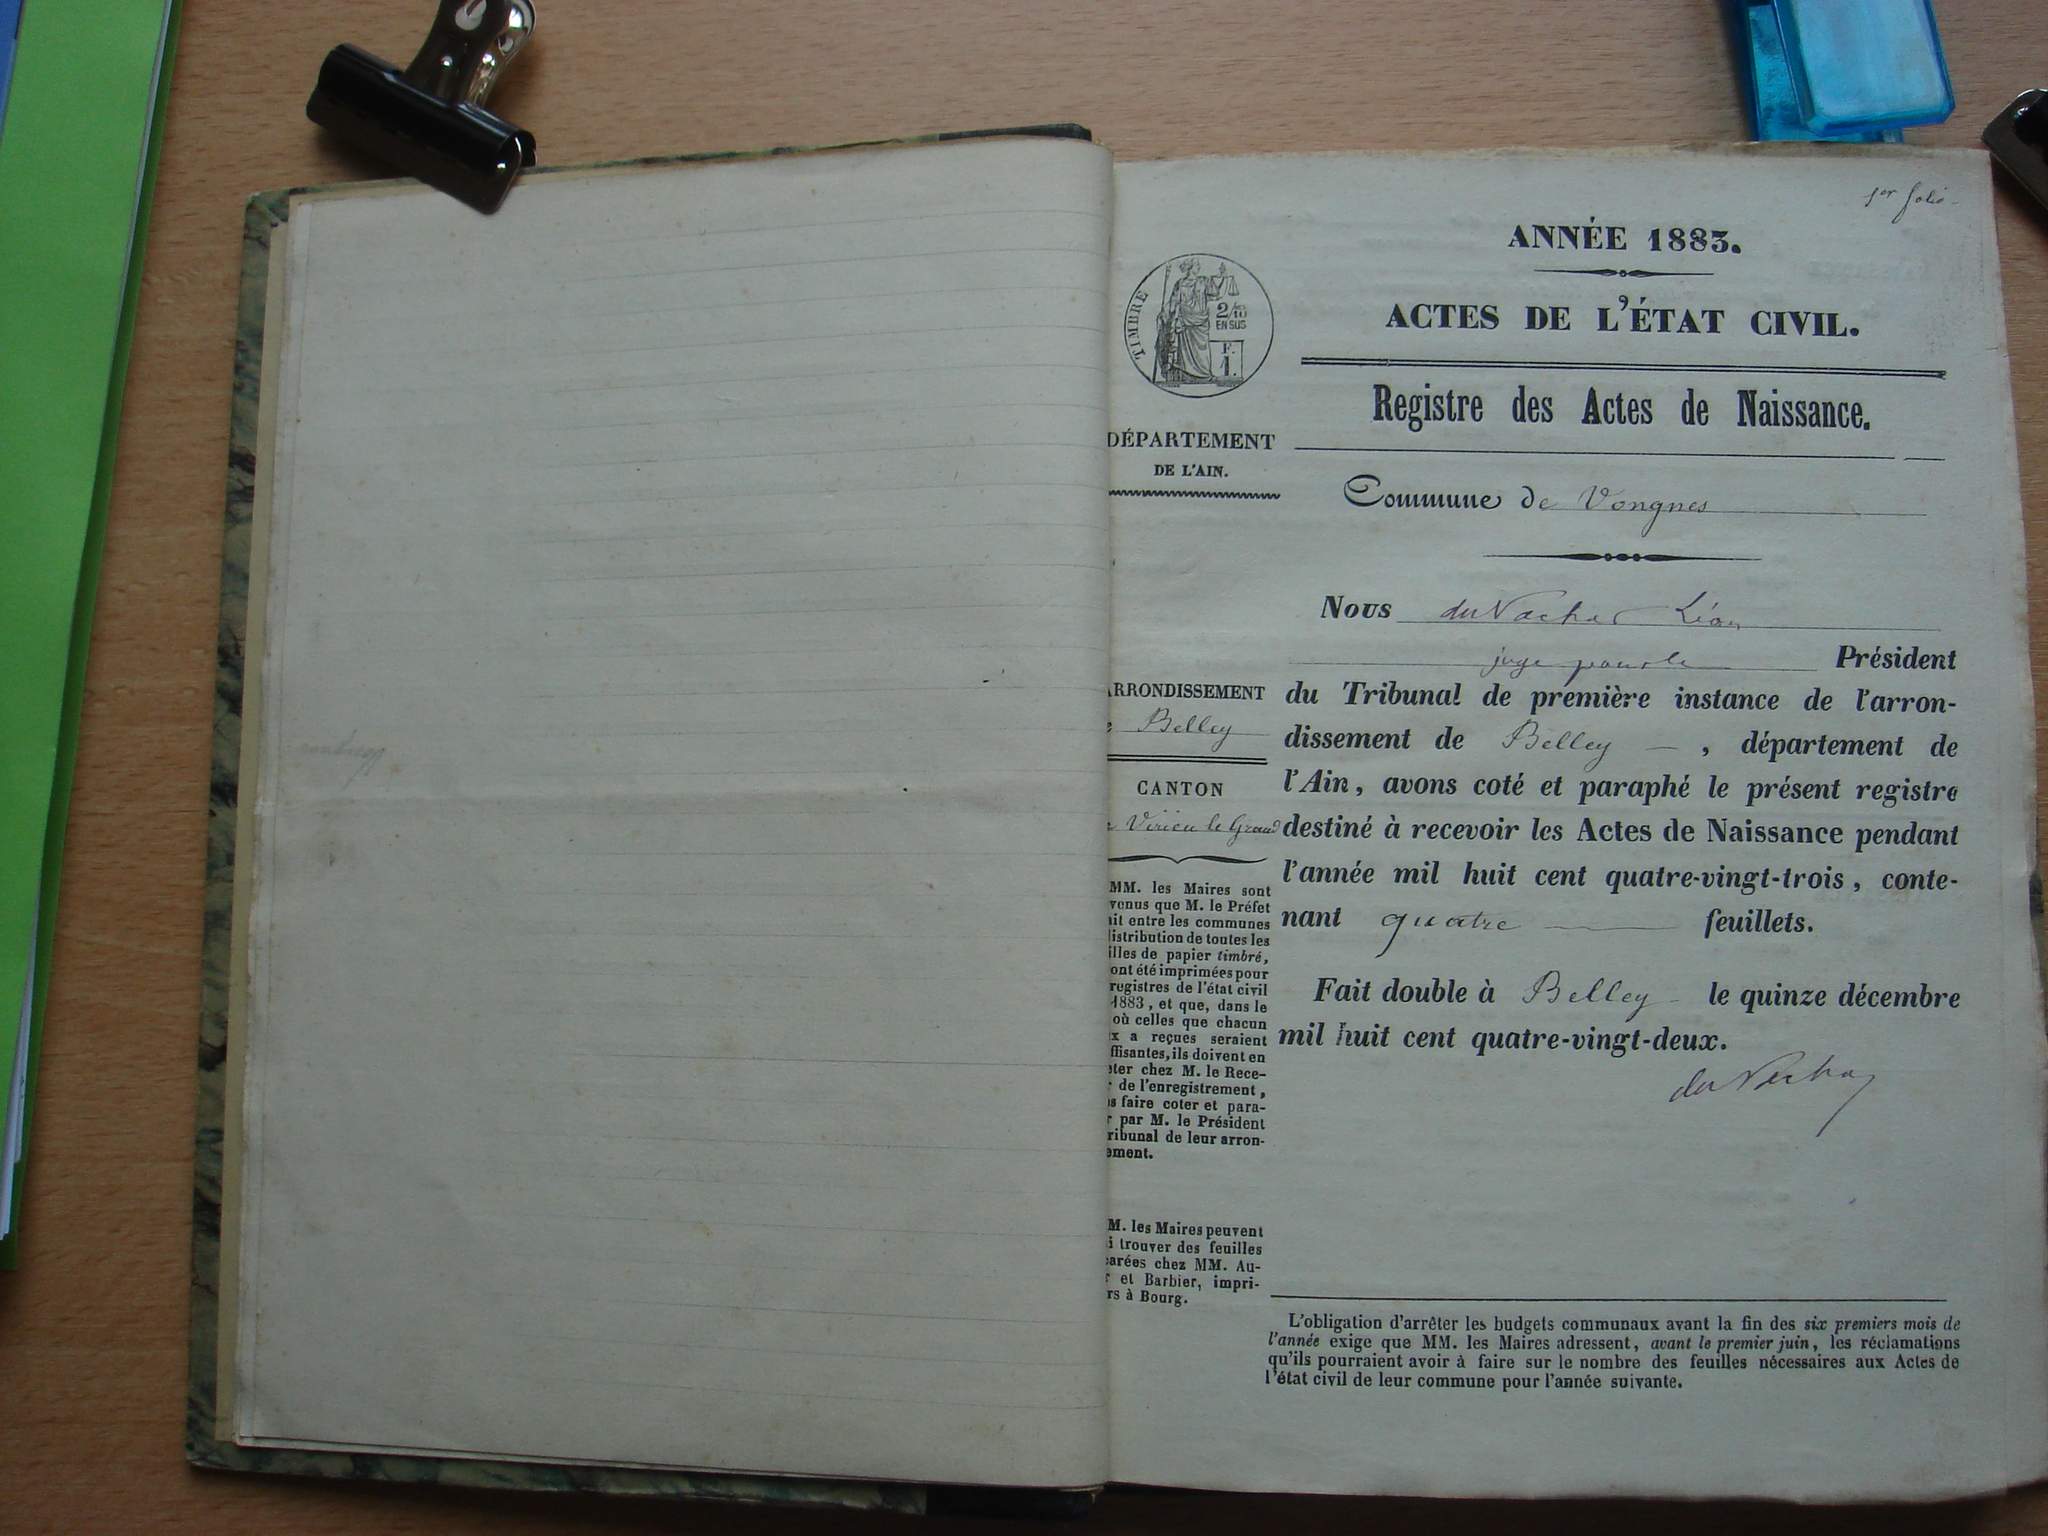 1er folio
ANNÉE 1883.
ACTES DE L'ÉTAT CIVIL.
TIMBRE
2/10
EN SUS
F.
1.
Registre des Actes de Naissance.
DÉPARTEMENT
DE L'AIN.
Commune de Vongnes
Nous du Vachat Léon
juge pour le Président
du Tribunal de première instance de l'arron-
dissement de Belley, département de
l'Ain, avons coté et paraphé le présent registre
destiné à recevoir les Actes de Naissance pendant
l'année mil huit cent quatre-vingt-trois, conte-
nant quatre feuillets.
Fait double à Belley le quinze décembre
mil huit cent quatre-vingt-deux.
du Vachat
ARRONDISSEMENT
Belley
CANTON
Virieu le Grand
MM. les Maires sont
venus que M. le Préfet
ait entre les communes
distribution de toutes les
illes de papier timbré,
ont été imprimées pour
registres de l'état civil
1883, et que, dans le
où celles que chacun
x a reçues seraient
ffisantes, ils doivent en
eter chez M. le Rece-
r de l'enregistrement,
s faire coter et para-
r par M. le Président
ribunal de leur arron-
ement.
M. les Maires peuvent
i trouver des feuilles
parées chez MM. Au-
r et Barbier, impri-
rs à Bourg.
L'obligation d'arrêter les budgets communaux avant la fin des six premiers mois de
l'année exige que MM. les Maires adressent, avant le premier juin, les réclamations
qu'ils pourraient avoir à faire sur le nombre des feuilles nécessaires aux Actes de
l'état civil de leur commune pour l'année suivante.